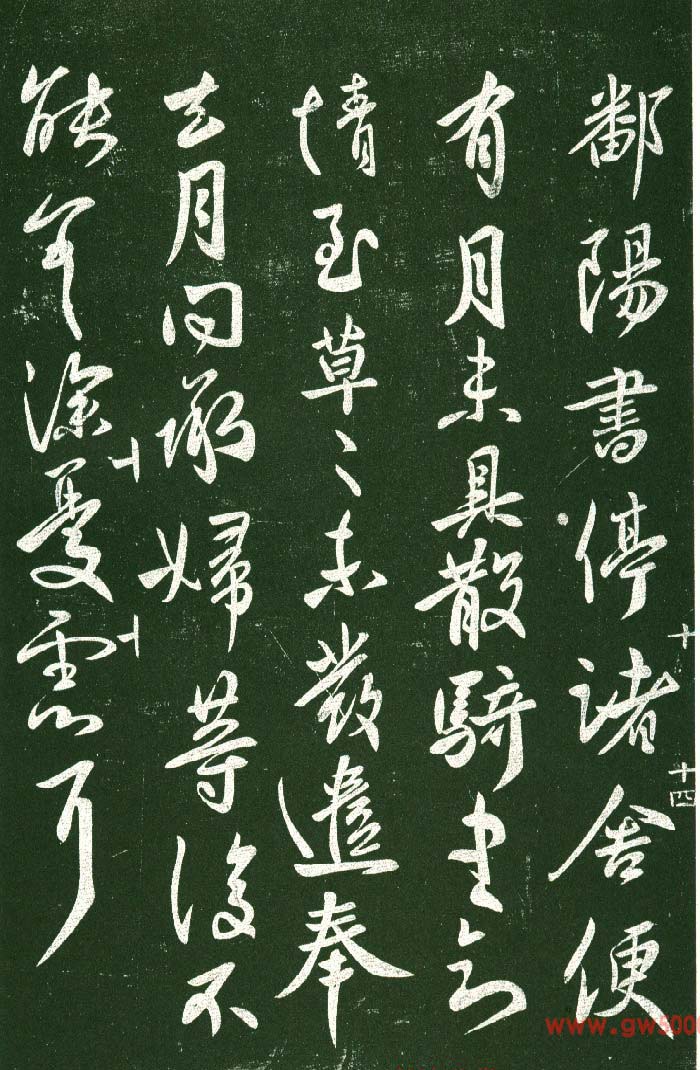 鄱陽書停諸舍便
有月未具散騎
情至草〻未發遣奉
去月問承婦等復不
能差深憂慮耳
十
十四
十
十
www.gw500